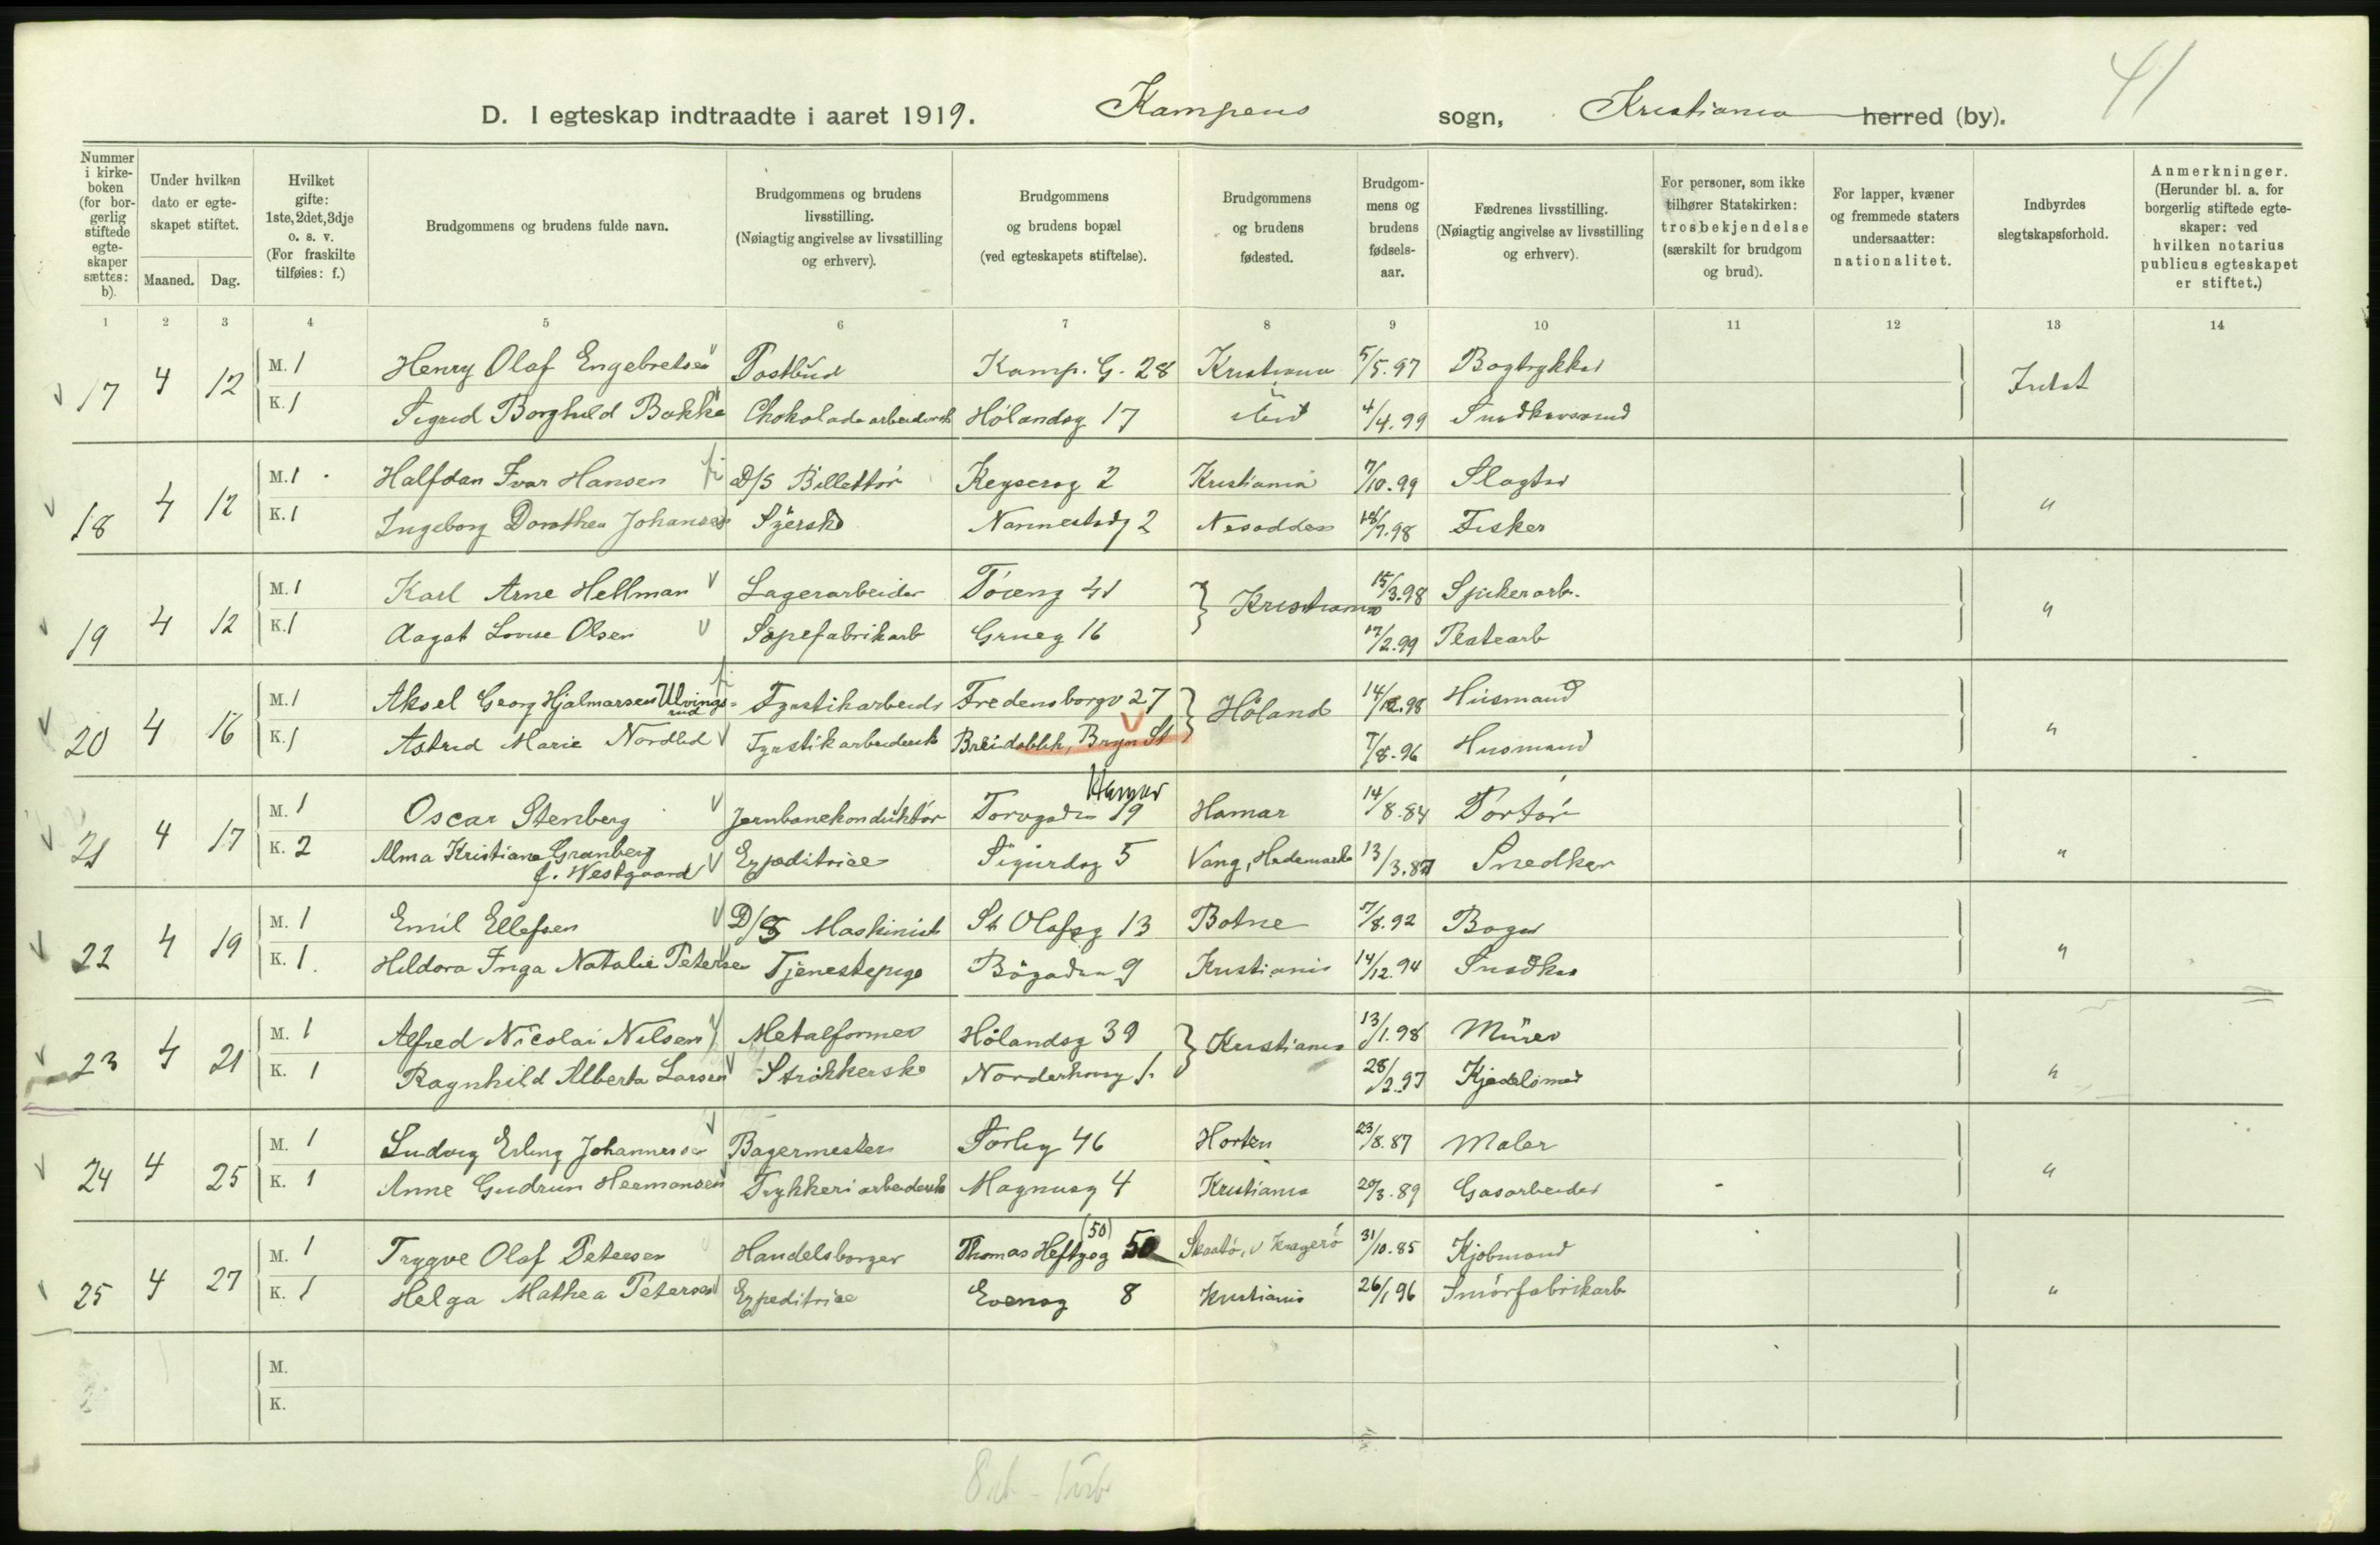 41
D. I egteskap indtraadte i aaret 1919. Kampens sogn, Kristiania herred (by).
Nummer i kirkeboken (for borgerlig stiftede egteskaper sættes: b).
Under hvilken dato er egteskapet stiftet.
Maaned. Dag.
Hvilket gifte: 1ste, 2det, 3dje o. s. v. (For fraskilte tilføies: f.)
Brudgommens og brudens fulde navn.
Brudgommens og brudens livsstilling. (Nøiagtig angivelse av livsstilling og erhverv).
Brudgommens og brudens bopæl (ved egteskapets stiftelse).
Brudgommens og brudens fødested.
Brudgommens og brudens fødselsaar.
Fædrenes livsstilling. (Nøiagtig angivelse av livsstilling og erhverv).
For personer, som ikke tilhører Statskirken: trosbekjendelse (særskilt for brudgom og brud).
For lapper, kvæner og fremmede staters undersaatter: nationalitet.
Indbyrdes slegtskapsforhold.
Anmerkninger. (Herunder bl. a. for borgerlig stiftede egteskaper: ved hvilken notarius publicus egteskapet er stiftet.)
1 2 3 4 5 6 7 8 9 10 11 12 13 14
17 4 12 M. 1 Henry Olaf Engebretsen Postbud Kamp. G. 28 Kristiania 5/5.97 Bogtrykker Intet
K. 1 Sigrid Borghild Bakke Chokoladearbeiderske Hølandsg 17 4/4.99 Snedkersvend
18 4 12 M. 1 Halfdan Ivar Hansen D/S Billettør Keysersg 2 Kristiania 7/10.99 Slagter "
K. 1 Ingeborg Dorothea Johansen Syerske Nannestadg 2 Nesodden 18/7.98 Fisker
19 4 12 M. 1 Karl Arne Hellman Lagerarbeider Tøieng 41 } Kristiania 15/3.98 Spikerarb. "
K. 1 Aagot Lovise Olsen Sæpefabrikarb Grueg 16 17/2.99 Platearb
20 4 16 M. 1 Aksel Georg Hjalmarsen Ulvingsrud Fyrstikarbeider Fredensborgv 27 } Høland 14/12.98 Husmand "
K. 1 Astrid Marie Nordlid Fyrstikarbeiderske Breidablik, Bryn St 7/8.96 Husmand
21 4 17 M. 1 Oscar Stenberg Jernbanekonduktør Torvgaden 19 Hamar Hamar 14/8.84 Portør "
K. 2 Alma Kristiane Granberg f. Westgaard Expeditrice Sigurdsg 5 Vang, Hedemark 13/3.87 Snedker
22 4 19 M. 1 Emil Ellefsen D/S Maskinist St Olafsg 13 Botne 7/8.92 Bager "
K. 1. Hildora Inga Natalie Petersen Tjenestepige Bøgaden 9 Kristiania 14/12.94 Snedker
23 4 21 M. 1 Alfred Nicolai Nilsen Metalformer Hølandsg 39 } Kristiania 13/1.98 Murer "
K. 1 Ragnhild Alberta Larsen Strøkkerske Norderhovg 1. 28/2.97 Kjedelsmed
24 4 25 M. 1 Ludvig Erling Johannessen Bagermester Sorlig 46 Horten 23/8.87 Maler "
K. 1 Anne Gudrun Hermansen Trykkeriarbeiderske Magnusg 4 Kristiania 20/3.89 Gasarbeider
25 4 27 M. 1 Trygve Olaf Petersen Handelsborger Thomas Heftyesg 50 (50) Skaatø, v Kragerø 31/10.85 Kjøbmand "
K. 1 Helga Mathea Petersen Expeditrice Evensg 8 Kristiania 26/1 96 Smørfabrikarb
M.
K.